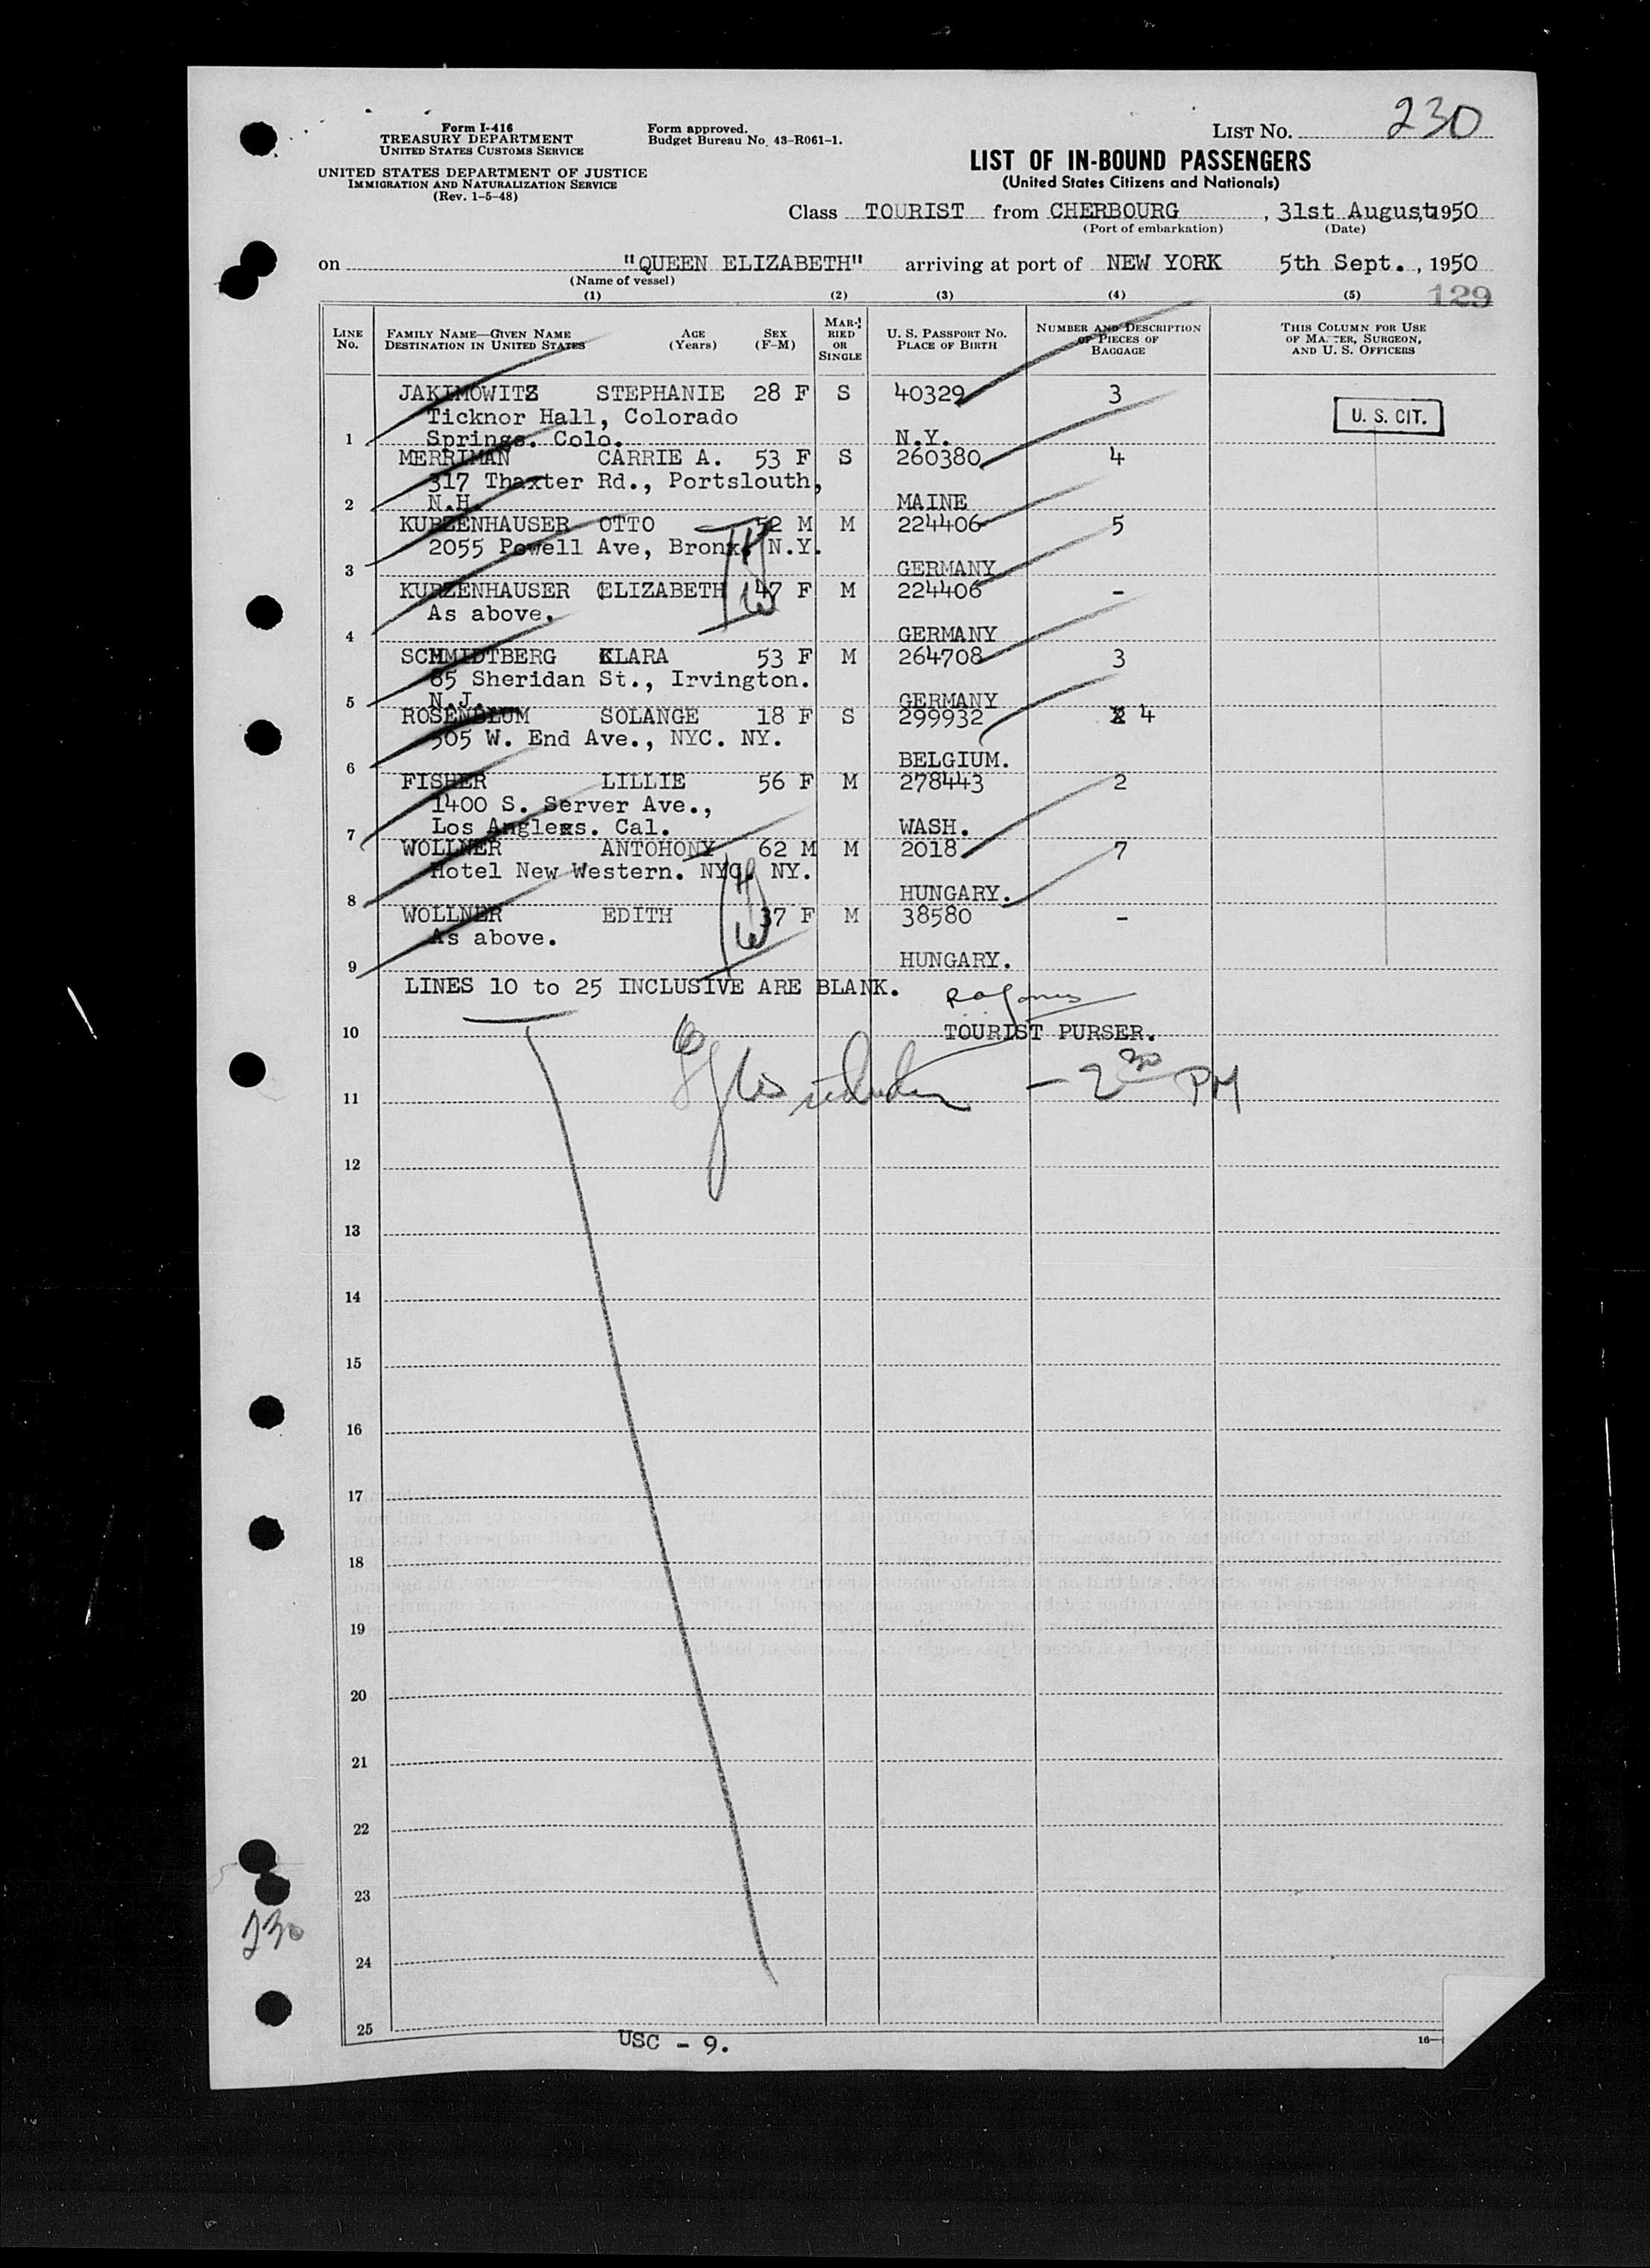 230
Form I-416
TREASURY DEPARTMENT
UNITED STATES CUSTOMS SERVICE
UNITED STATES DEPARTMENT OF JUSTICE
IMMIGRATION AND NATURALIZATION SERVICE
(Rev. 1-5-48)
Form approved.
Budget Bureau No. 43-R061-1.
LIST NO.
LIST OF IN-BOUND PASSENGERS
(United States Citizens and Nationals)
Class TOURIST from CHERBOURG, 31st August, 1950
(Port of embarkation) (Date)
on "QUEEN ELIZABETH" arriving at port of NEW YORK 5th Sept., 1950
(Name of vessel)
(1) (2) (3) (4) (5) 129
LINE NO. FAMILY NAME—GIVEN NAME DESTINATION IN UNITED STATES AGE (Years) SEX (F-M) MARRIED OR SINGLE U. S. PASSPORT NO. PLACE OF BIRTH NUMBER AND DESCRIPTION OF PIECES OF BAGGAGE THIS COLUMN FOR USE OF MASTER, SURGEON, AND U. S. OFFICERS
JAKIMOWITZ STEPHANIE 28 F S 40329 3
Ticknor Hall, Colorado U. S. CIT.
1 Springs. Colo. N.Y.
MERRIMAN CARRIE A. 53 F S 260380 4
317 Thaxter Rd., Portslouth,
2 N.H. MAINE
KURZENHAUSER OTTO 52 M M 224406 5
2055 Powell Ave, Bronx. N.Y.
3 GERMANY
KURZENHAUSER ELIZABETH 47 F M 224406 -
As above.
4 GERMANY
SCHMIDTBERG KLARA 53 F M 264708 3
85 Sheridan St., Irvington.
5 N.J. GERMANY
ROSENBLUM SOLANGE 18 F S 299932 4
505 W. End Ave., NYC. NY.
6 BELGIUM.
FISHER LILLIE 56 F M 278443 2
1400 S. Server Ave.,
7 Los Anglexs. Cal. WASH.
WOLLNER ANTOHONY 62 M M 2018 7
Hotel New Western. NYC. NY.
8 HUNGARY.
WOLLNER EDITH 37 F M 38580 -
As above.
9 HUNGARY.
LINES 10 to 25 INCLUSIVE ARE BLANK.
10 TOURIST PURSER.
11 - 2 30 PM
12
13
14
15
16
17
18
19
20
21
22
23
230
24
25
USC - 9.
16—